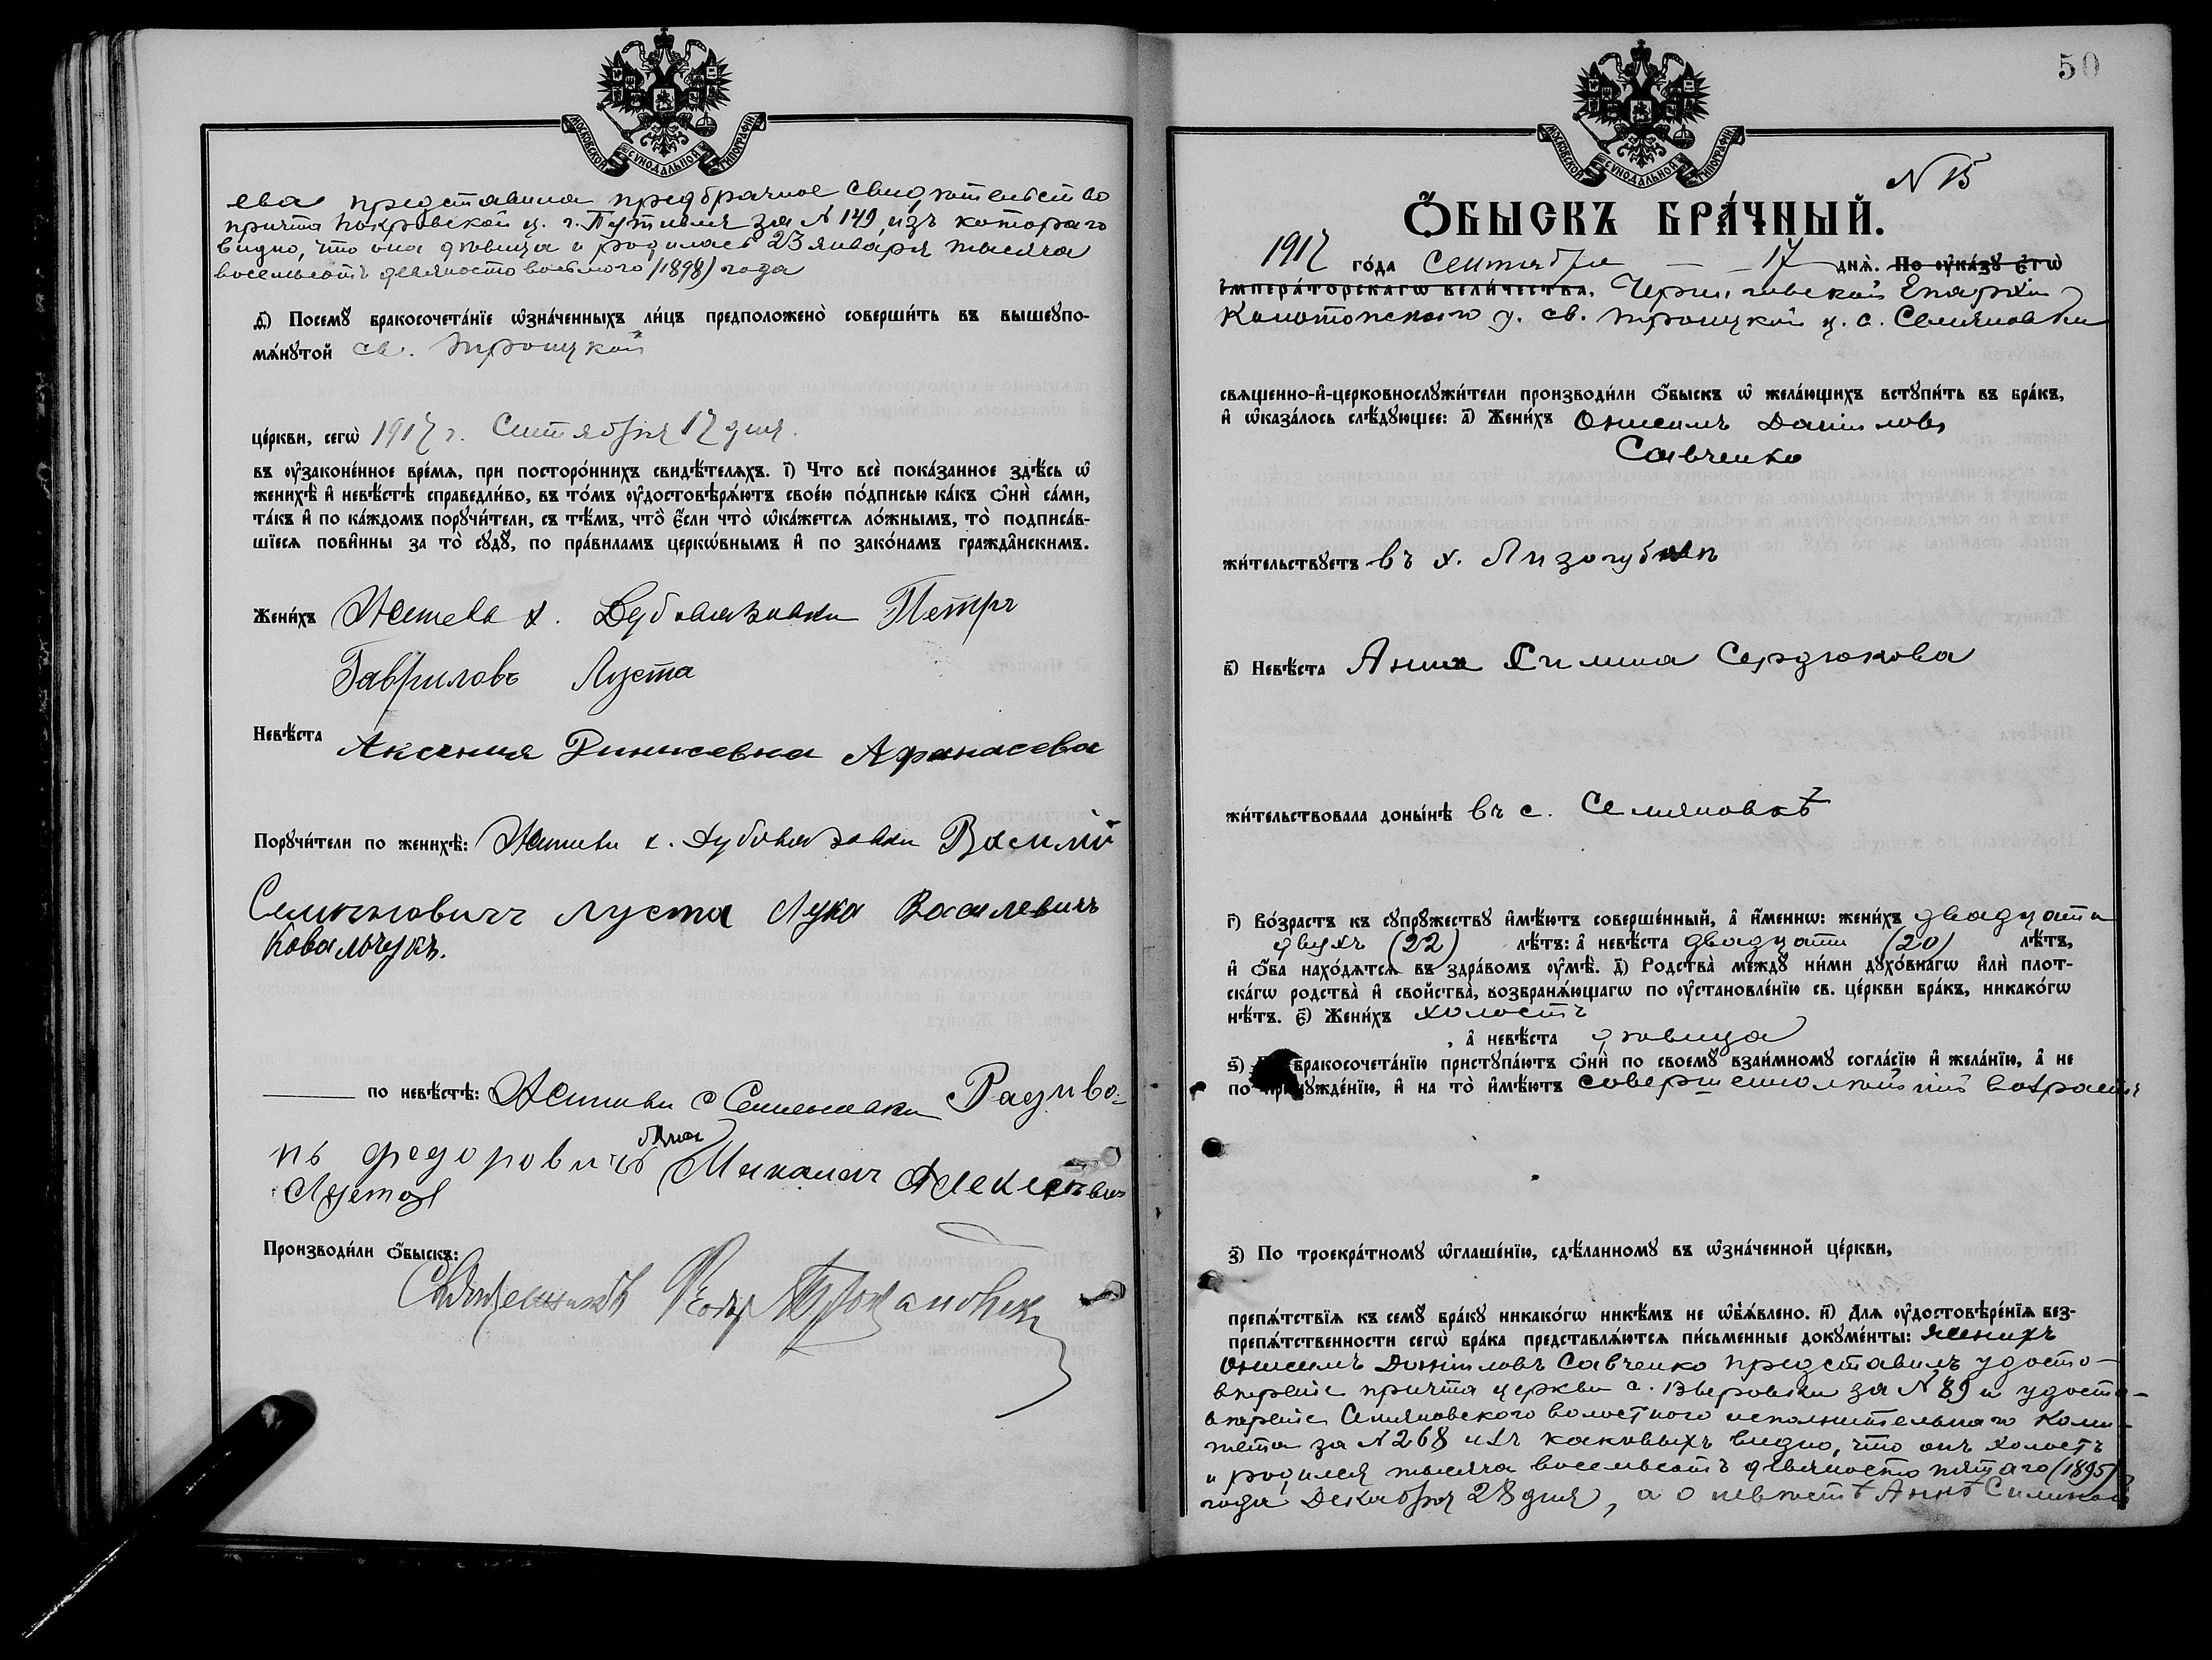 МОСКОВСКОЙ СѴНОДАЛЬНОЙ ТИПОГРАФІИ
ева представила предбрачное свидѣтельство
причта Покровской ц. г. Путивля за № 149, изъ котораго
видно, что она дѣвица и родилась 23 января тысяча
восемьсотъ девяносто восьмого (1898) года
д҃) Посемꙋ бракосочета́нїе ѡ҆зна́ченныхъ ли́цъ предположено̀ соверши́ть въ вышеꙋпо-
мѧ́нꙋтой св. Троицкой
це́ркви, сегѡ̀ 1917 г. Сентября 17 дня.
въ ᲂу҆законе́нное вре́мѧ, при посторо́ннихъ свидѣ́телѧхъ. і҃) Что всѐ пока́занное здѣ́сь ѡ҆
женихѣ̀ и҆ невѣ́стѣ справедли́во, въ то́мъ ᲂу҆достовѣрѧ́ютъ свое́ю по́дписью ка́къ ѻ҆нѝ са́ми,
та́къ и҆ по ка́ждомъ порꙋчи́тели, съ тѣ́мъ, что̀ є҆́сли что̀ ѡ҆ка́жетсѧ ло́жнымъ, то̀ подписа́в-
шїесѧ пови́нны за то̀ сꙋдꙋ̀, по пра́виламъ церкѡ́внымъ и҆ по зако́намъ гражда̂нскимъ.
Жени́хъ Житель х. Дубовязовки Петръ
Гавриловъ Луста
Невѣ́ста Аксения Афанасева
Порꙋчи́тели по женихѣ̀: х. Дубовязовки Василий
Семеновичъ Луста Лука Василевичъ
Ковальчукъ.
по невѣ́стѣ: с Семеновки Радиво-
нъ федоровичъ Михаилъ Алексѣевич
Лустол
Производи́ли ѻ҆́быскъ:
Священникъ Феодор
50
МОСКОВСКОЙ СѴНОДАЛЬНОЙ ТИПОГРАФІИ
N 15
Ѻ҆́БЫСКЪ БРА́ЧНЫЙ.
1917 го́да Сентября 17 днѧ̀. По ᲂу҆ка́зꙋ є҆гѡ̀
и҆мпера́торскагѡ вели́чества, Черниговской Епархіи
Конотопскаго у. св. Троицкой ц. с. Семяновки
свѧщенно-и҆-церковнослꙋжи́тели производи́ли ѻ҆́быскъ ѡ҆ жела́ющихъ встꙋпи́ть въ бра́къ,
и҆ ѡ҆каза́лось слѣ́дꙋющее: а҃) Жени́хъ Онисимъ Даніиловъ
Савченко
жи́тельствꙋетъ въ х. Лизогубовкѣ
в҃) Невѣ́ста Анна Силина Сердюкова
жи́тельствовала доны́нѣ въ с. Семяновкѣ
г҃) Во́зрастъ къ сꙋпрꙋ́жествꙋ и҆мѣ́ютъ соверше́нный, а҆ и҆́меннѡ: жени́хъ двадцати
двухъ (22) лѣ́тъ: а҆ невѣ́ста двадцати (20) лѣ́тъ,
и҆ ѻ҆́ба нахо́дѧтсѧ въ здра́вомъ ᲂу҆мѣ̀. д҃) Родства̀ междꙋ̀ ни́ми дꙋхо́внагѡ и҆лѝ плот-
ска́гѡ родства̀ и҆ свойства̀, возбранѧ́ющагѡ по ᲂу҆становле́нїю св. це́ркви бра́къ, никако́гѡ
нѣ́тъ. є҃) Жени́хъ холостъ
, а҆ невѣ́ста дѣвица
ѕ҃) бракосочета́нїю пристꙋпа́ютъ ѻ҆нѝ по своемꙋ̀ взаи́мномꙋ согла́сїю и҆ жела́нїю, а҆ не
по принꙋжде́нїю, и҆ на то̀ и҆мѣ́ютъ совершеннолѣтній возрастъ
з҃) По троекра́тномꙋ ѡ҆глаше́нїю, сдѣ́ланномꙋ въ ѡ҆зна́ченной це́ркви,
препѧ́тствїѧ къ семꙋ̀ бра́кꙋ никако́гѡ никѣ́мъ не ѡ҆бъѧ́влено. и҃) Длѧ ᲂу҆достовѣре́нїѧ без-
препѧ́тственности сегѡ̀ бра́ка представлѧ́ютсѧ пи́сьменные докꙋме́нты: женихъ
Онисимъ Даніиловъ Савченко представилъ удосто-
вѣреніе причта церкви с. за № 89 и удосто-
вѣреніе Семяновского волостного исполнительнаго коми-
тета за № 268 изъ каковыхъ видно, что онъ холостъ
и родился тысяча восемьсотъ девяносто пятаго (1895)
года Декабря 28 дня, а о невѣстѣ Аннѣ Силиной